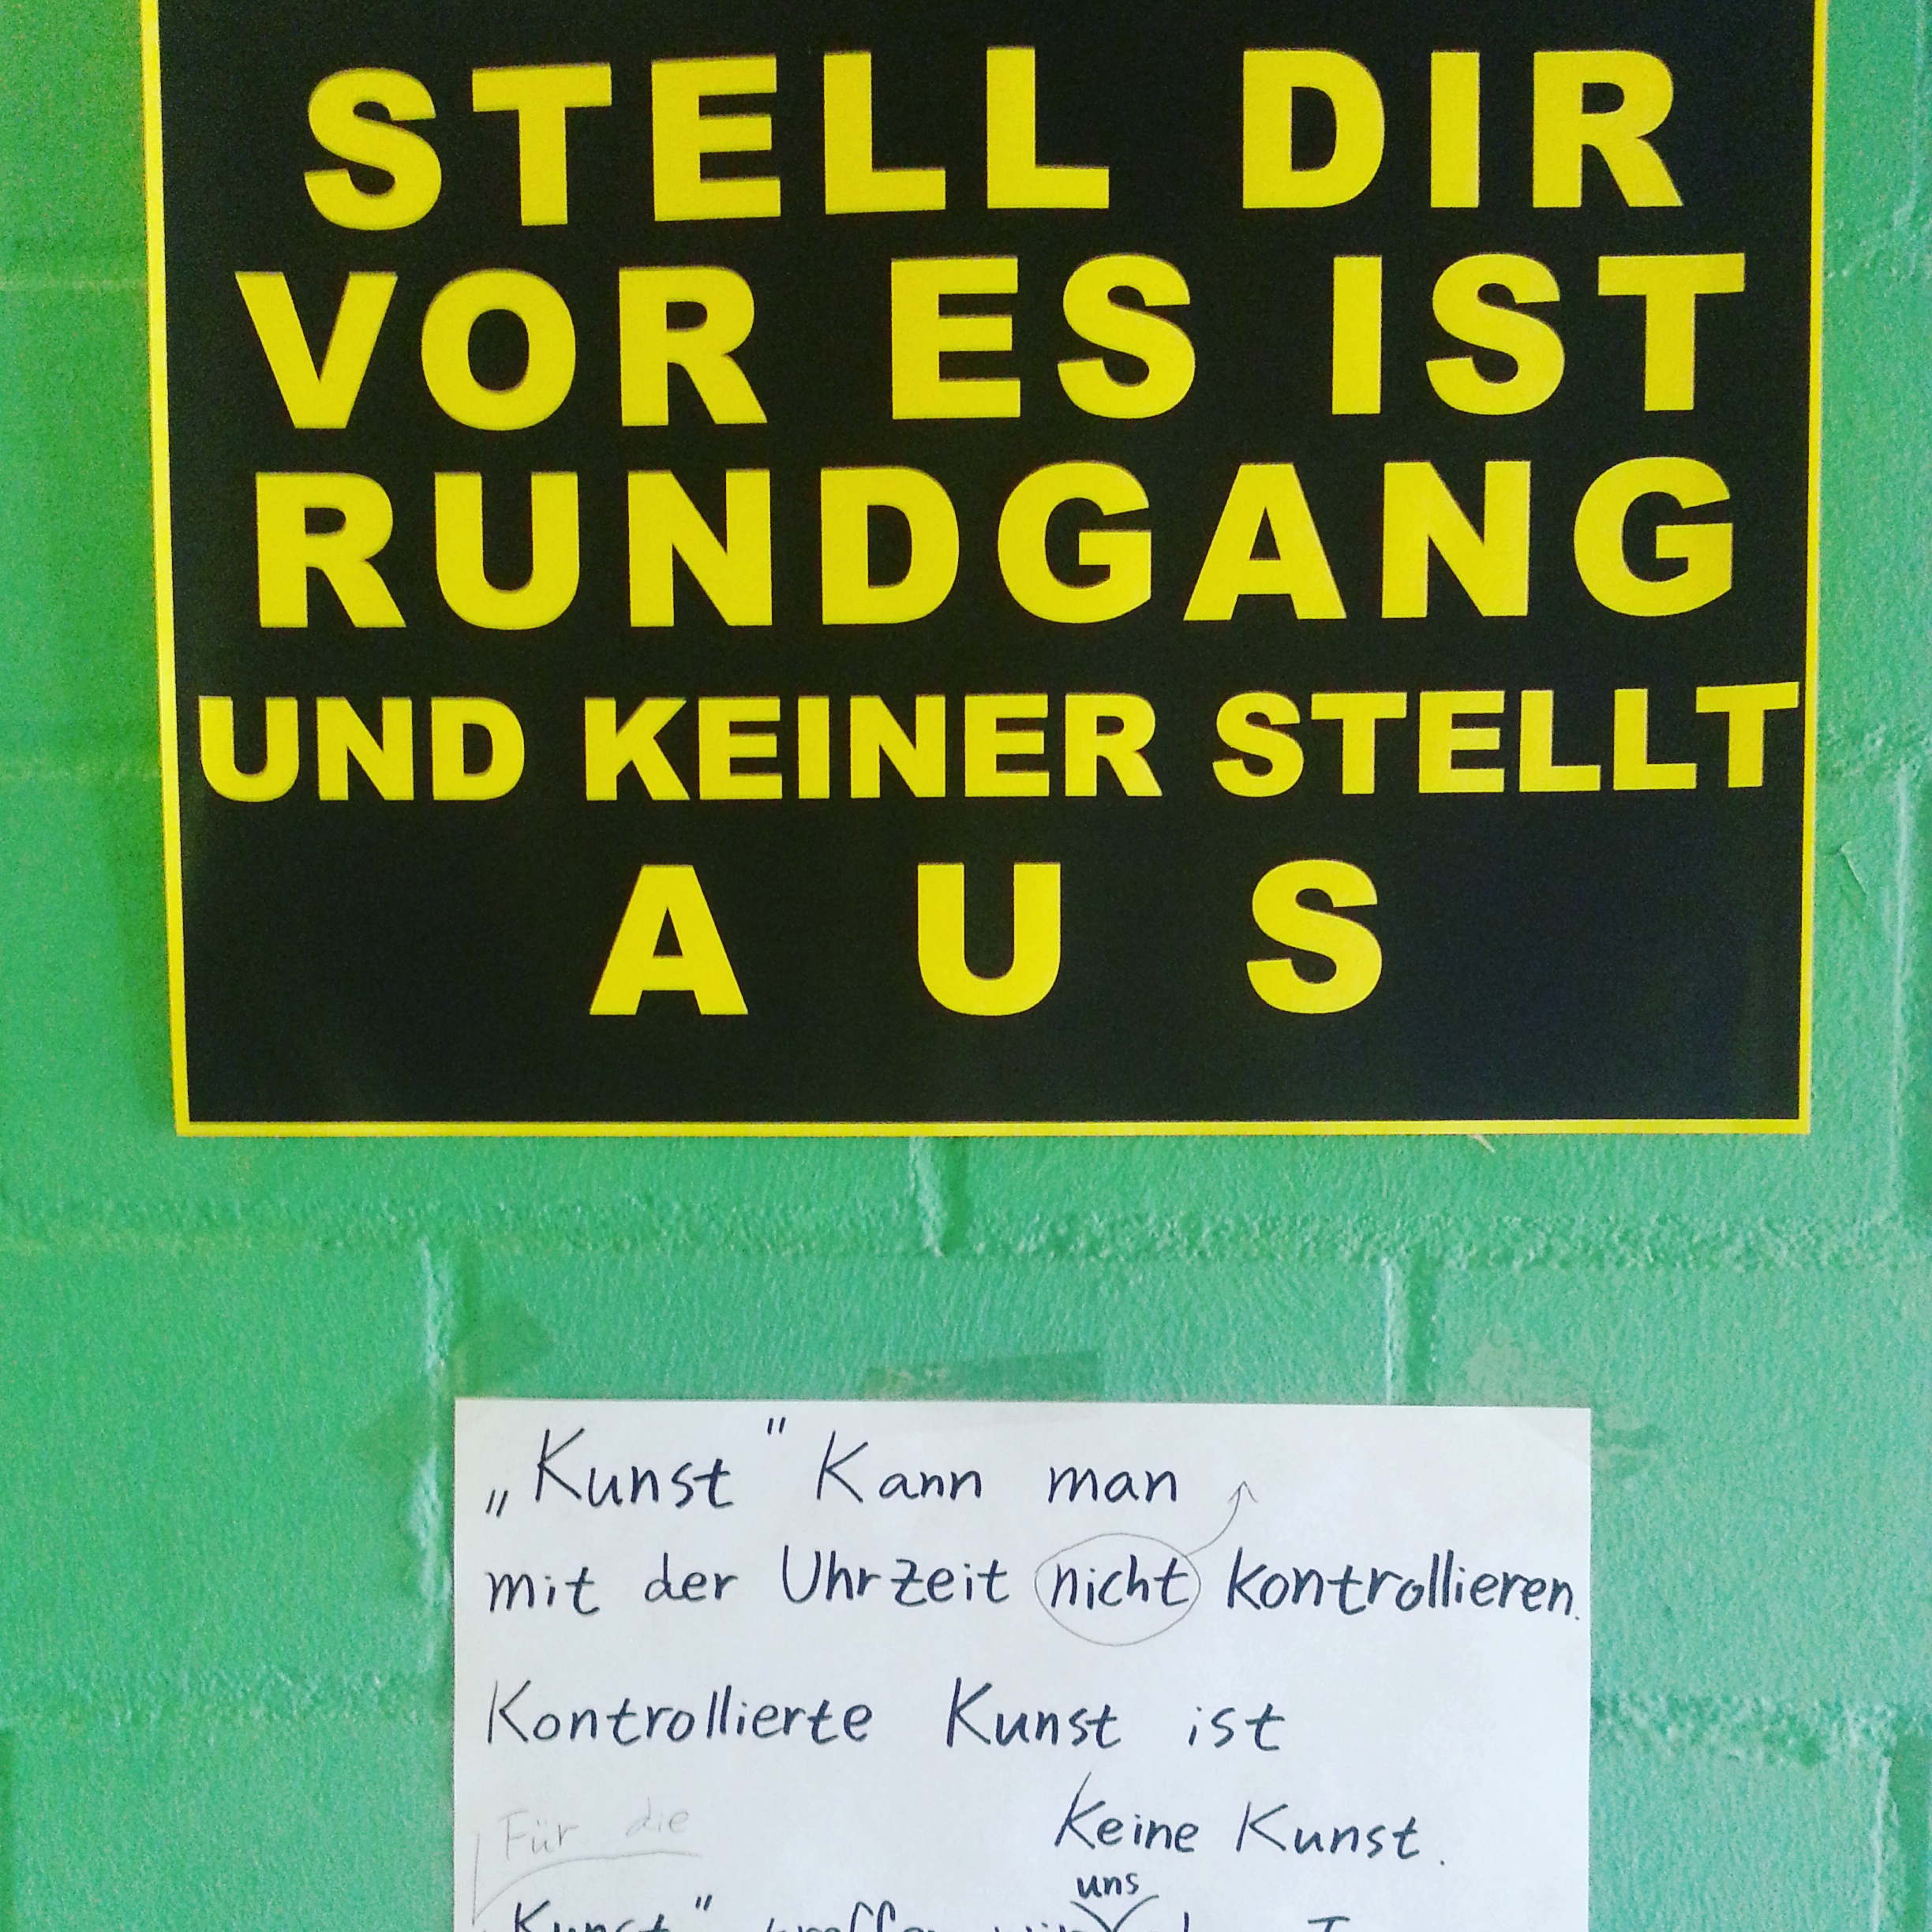 STELL DIR
VOR ES IST
RUNDGANG
UND KEINER STELLT
AUS
„Kunst" Kann man
mit der Uhrzeit nicht kontrollieren.
Kontrollierte Kunst ist
Für die
keine Kunst.
uns
Kunst"